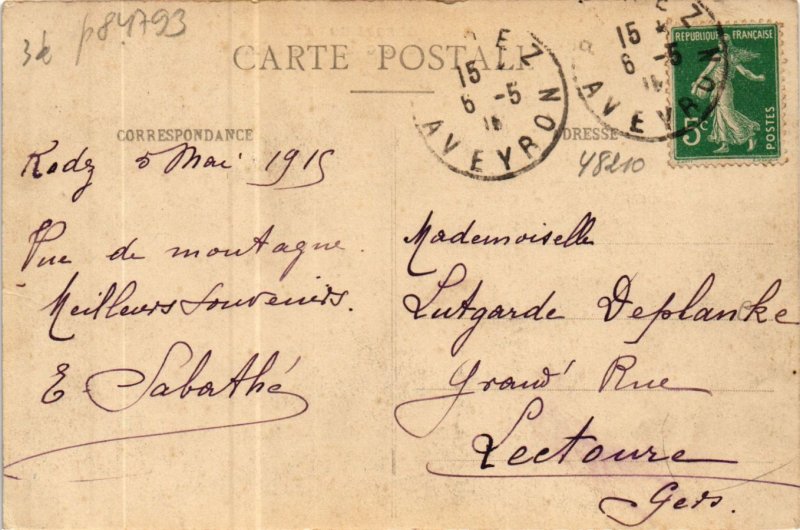 3k p84793
CARTE POSTALE
EZ
15 *
6 -5
AVEYRON
EZ
15 *
6 -5
AVEYRON
RÉPUBLIQUE FRANÇAISE
5c
POSTES
CORRESPONDANCE
ADRESSE
48210
Rodez 5 Mai 1915
Vue de montagne.
Meilleurs Souvenirs.
E. Sabathé
Mademoiselle
Lutgarde Deplanke
Grand' Rue
Lectoure
Gers.